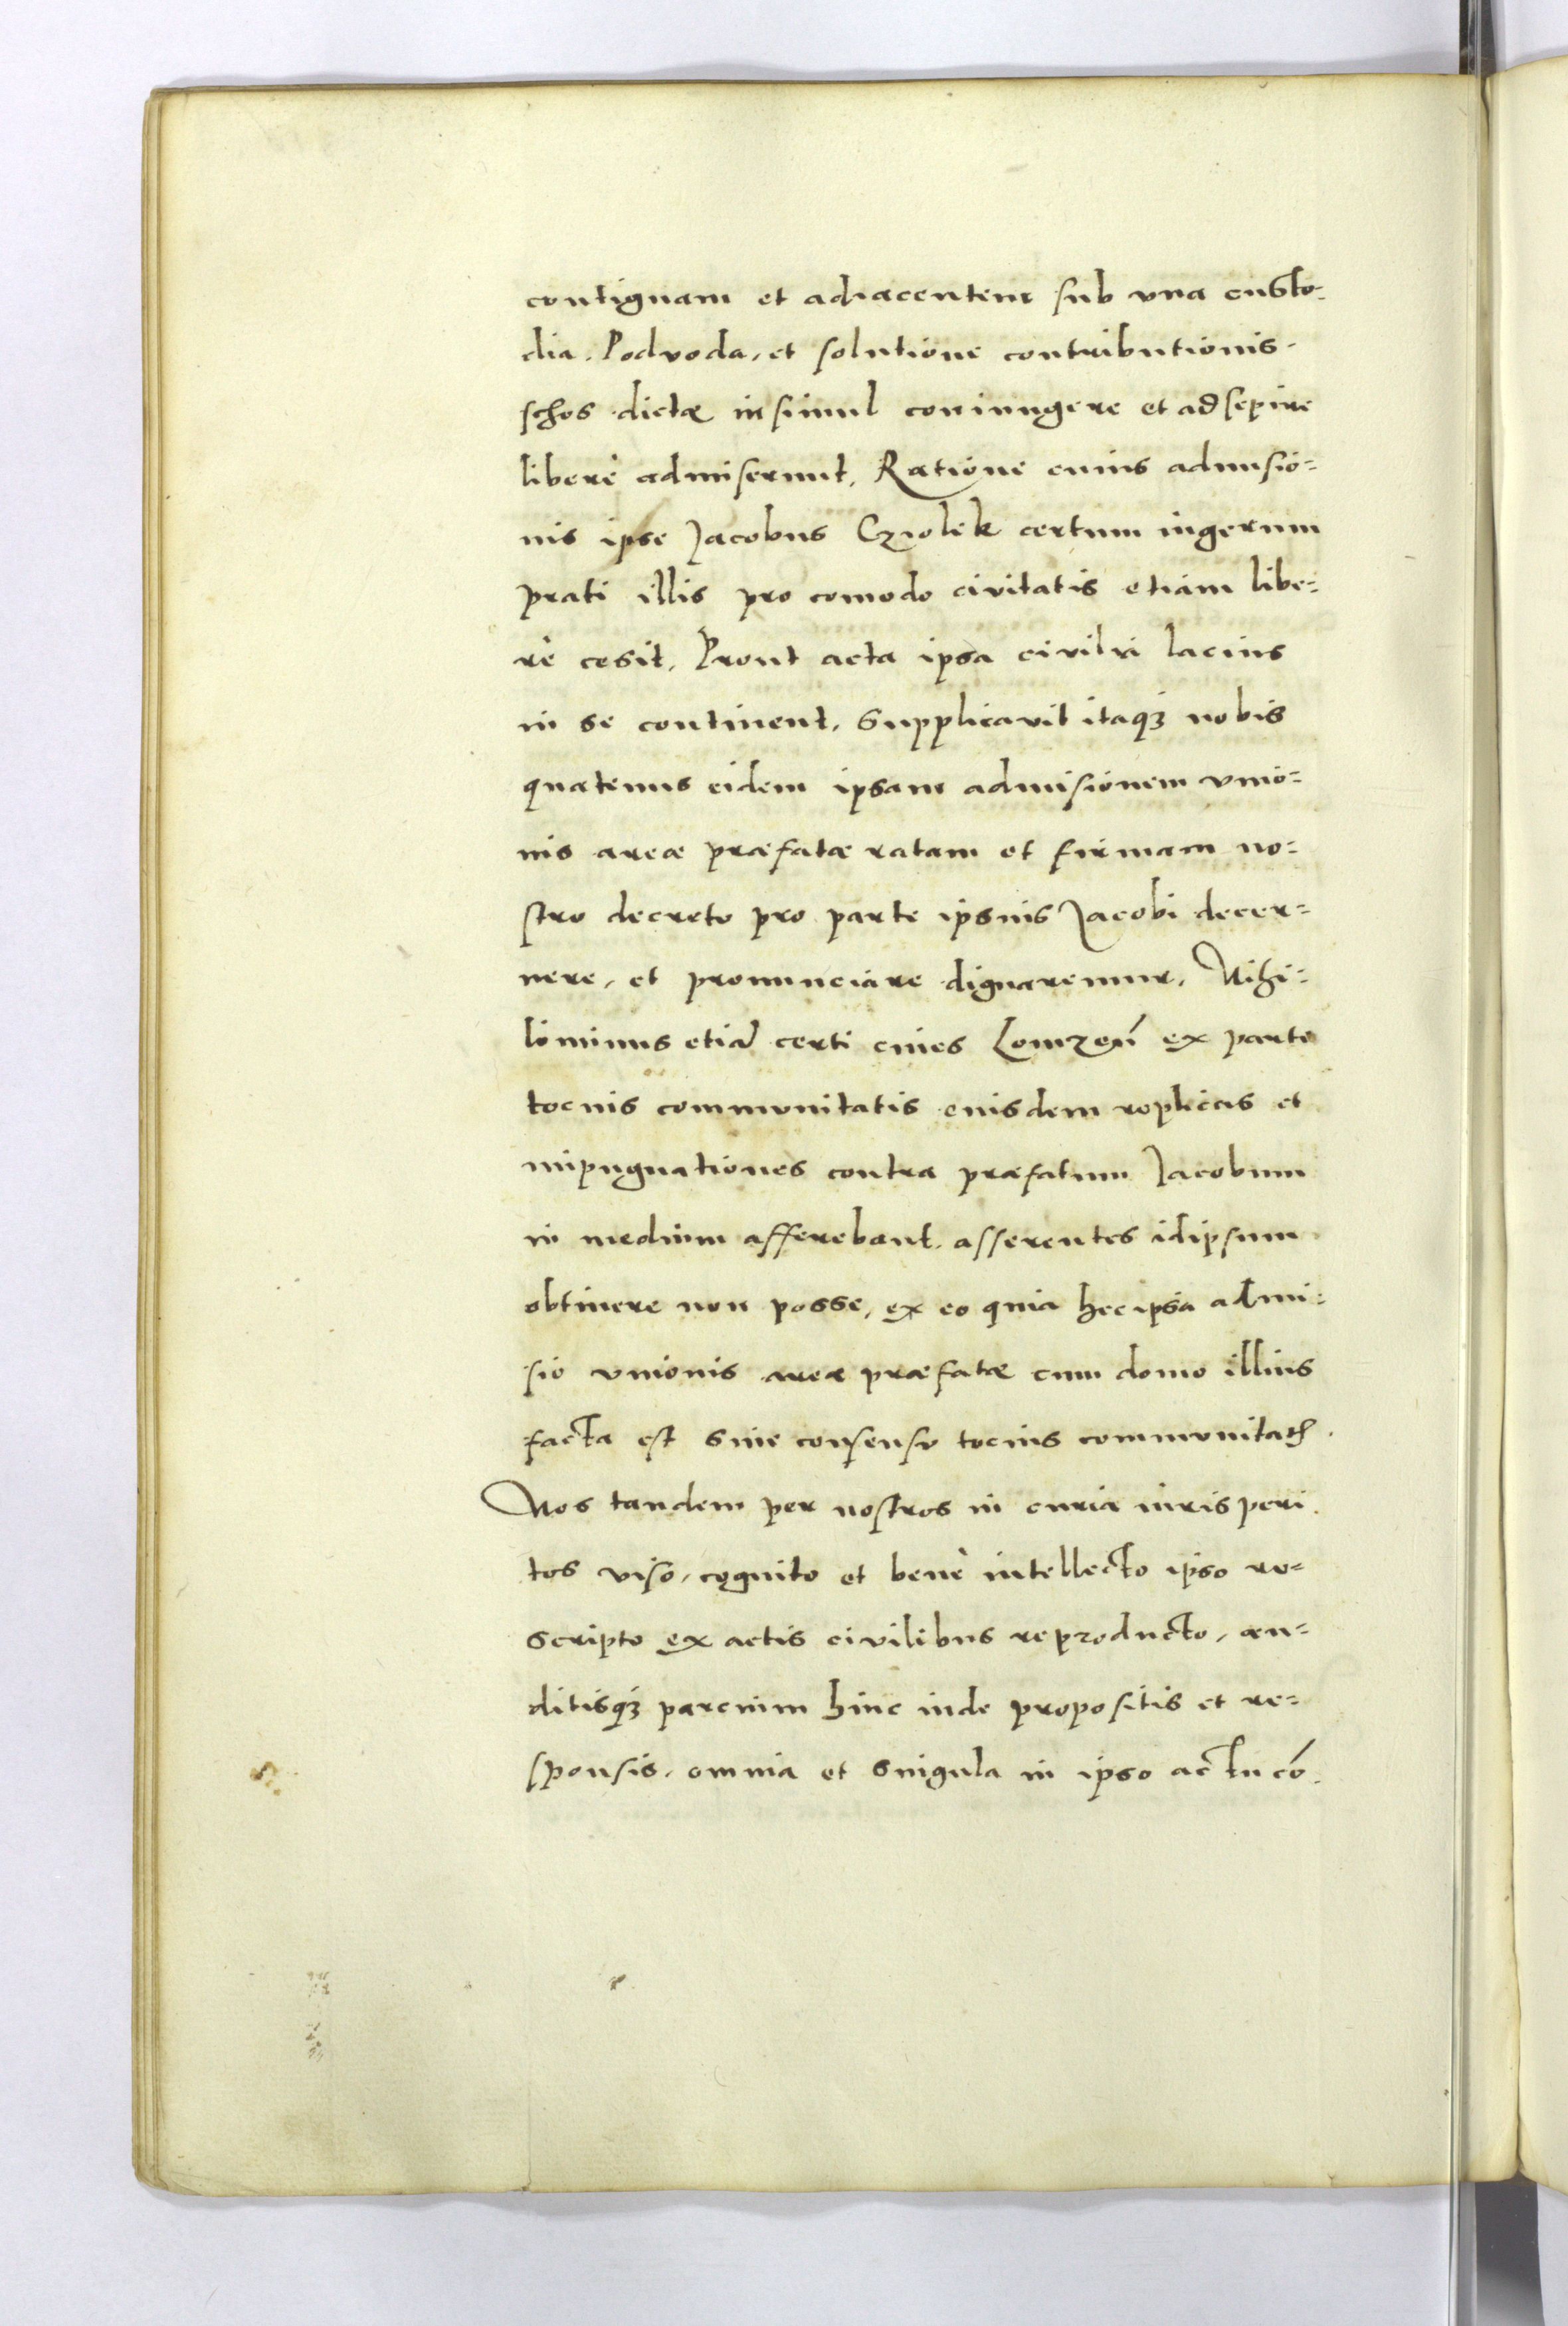 contiguam et adiacentem sub vna custo=
dia, Podvoda, et solutione contributionis
schos dictæ insimul coniungere et adsepire
liberè admiserunt, Ratione cuius admisio=
nis ipse Jacobus Cziolek certum iugerum
prati illis pro comodo civitatis etiam libe=
rè cesit, Prout acta ipsa civilia lacius
in se continent, Supplicavit itaq3 nobis
quatenus eidem ipsam admisionem vnio=
nis areæ præfatæ ratam et firmam no=
stro decreto pro parte ipsius Jacobi decer=
nere, et pronunciare dignaremur, Nihi=
lominus etiã certi ciues Lomzeñ ex parte
tocius communitatis eiusdem replicas et
impugnationes contra præfatum Jacobum
in medium afferebant, asserentes idipsum
obtinere non posse, ex eo quia hec ipsa admi=
sio vnionis areæ præfatæ cum domo illius
facta est sine consensu tocius communitatꝭ.
Nos tandem per nostros in curia iuris peri
tos viso, cognito et benè intellecto ipso re=
scripto ex actis civilibus reproducto, au=
ditisq3 parcium hinc inde propositis et re=
sponsis, omnia et singula in ipso actu cõ